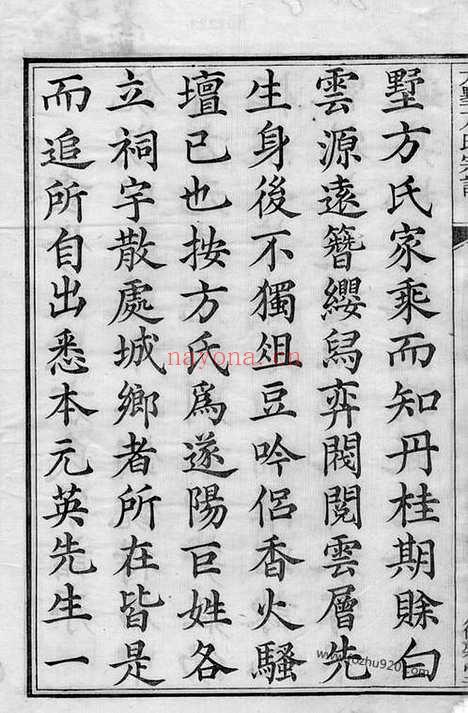 墅方氏家乘而知丹桂期賒白
雲源遠簪纓舄弈閥閱雲層先
生身後不獨俎豆吟侶香火騷
壇已也按方氏爲遂陽巨姓各
立祠宇散處城鄉者所在皆是
而追所自出悉本元英先生一
nayona.cn